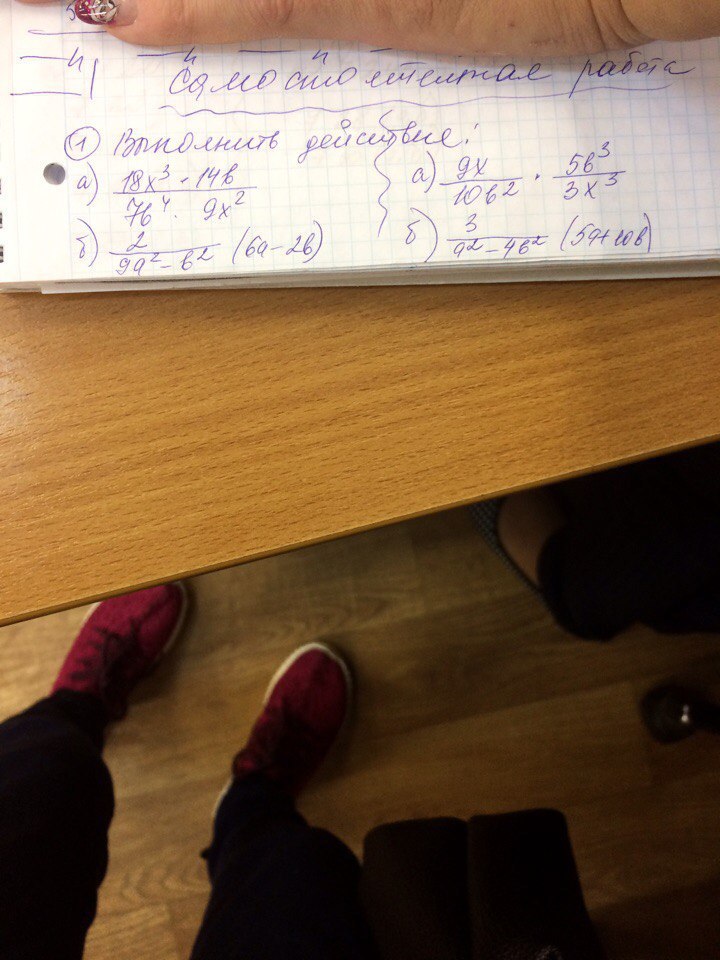 Самостоятельная работа
① Выполнить действие:
а) 18x³ · 14в / 7в⁴ · 9x²
б) 2 / 9а² - в² (6а - 2в)
а) 9x / 10в² · 5в³ / 3x³
б) 3 / а² - 4в² (5а + 10в)